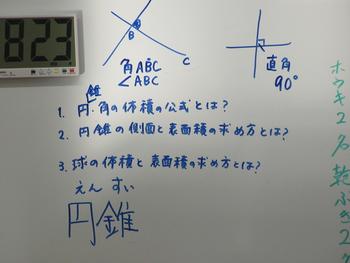 823
B
C
角ABC
<ABC
直角
90°
錐
1. 円・角の体積の公式とは?
2. 円錐の側面と表面積の求め方とは?
3. 球の体積と表面積の求め方とは?
えん すい
円錐
ホウキ2名 乾ぶき2名